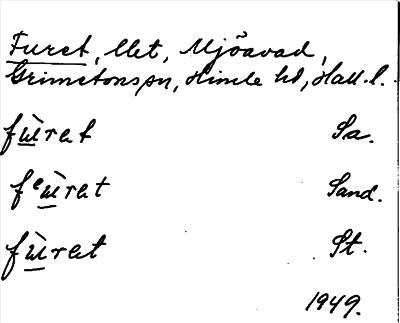 Furet, Met, Mjöavad,
Grimetons sn, Himle hd, Hall. l.
fù̲ret Sa.
fᵉù̲ret Sand.
fù̲ret St.
1949.